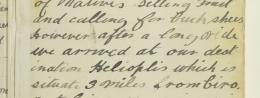 of natives selling fruit
and calling for buckshees
however after a long ride
we arrived at our dest
ination Helioplis which is
situate 3 miles from Ciro.